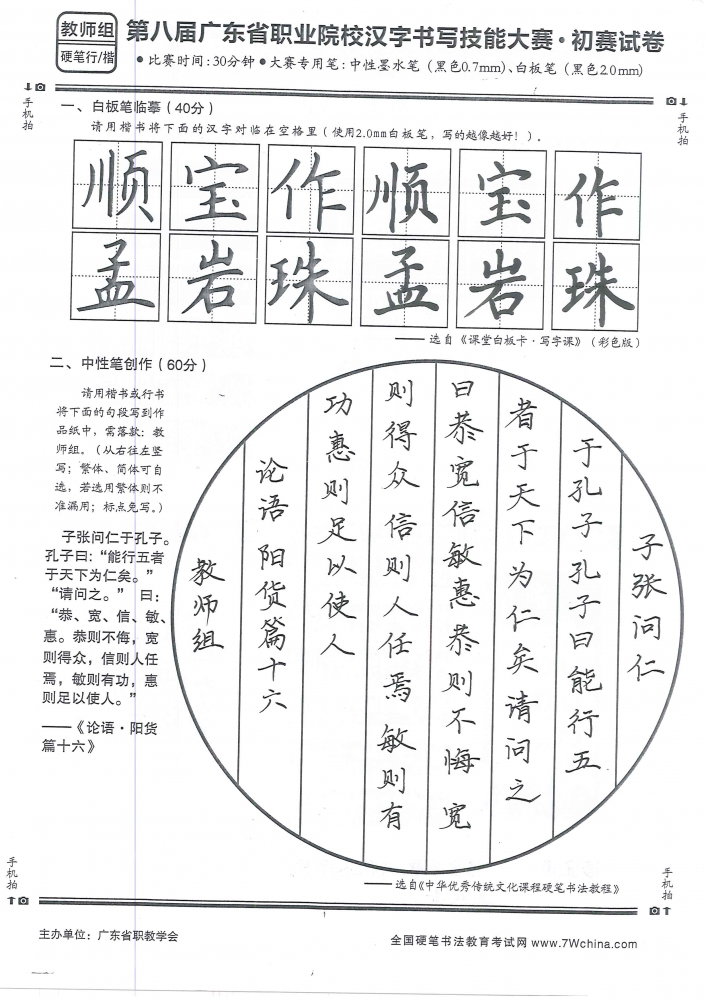 教师组
硬笔行/楷
第八届广东省职业院校汉字书写技能大赛·初赛试卷
●比赛时间:30分钟●大赛专用笔:中性墨水笔(黑色0.7mm)、白板笔(黑色2.0mm)
手机拍
手机拍
一、白板笔临摹(40分)
请用楷书将下面的汉字对临在空格里(使用2.0mm白板笔,写的越像越好!).
顺宝作顺宝作
孟岩珠孟岩珠
——选自《课堂白板卡·写字课》(彩色版)
二、中性笔创作(60分)
请用楷书或行书
将下面的句段写到作
品纸中,需落款:教
师组。(从右往左竖
写;繁体、简体可自
选,若选用繁体则不
准漏用;标点免写。)
子张问仁于孔子。
孔子曰:“能行五者
于天下为仁矣。”
“请问之。” 曰:
“恭、宽、信、敏、
惠。恭则不侮,宽
则得众,信则人任
焉,敏则有功,惠
则足以使人。”
——《论语·阳货
篇十六》
子张问仁
于孔子孔子曰能行五
者于天下为仁矣请问之
曰恭宽信敏惠恭则不悔宽
则得众信则人任焉敏则有
功惠则足以使人
论语阳货篇十六
教师组
——选自《中华优秀传统文化课程硬笔书法教程》
手机拍
手机拍
主办单位:广东省职教学会
全国硬笔书法教育考试网 www.7Wchina.com